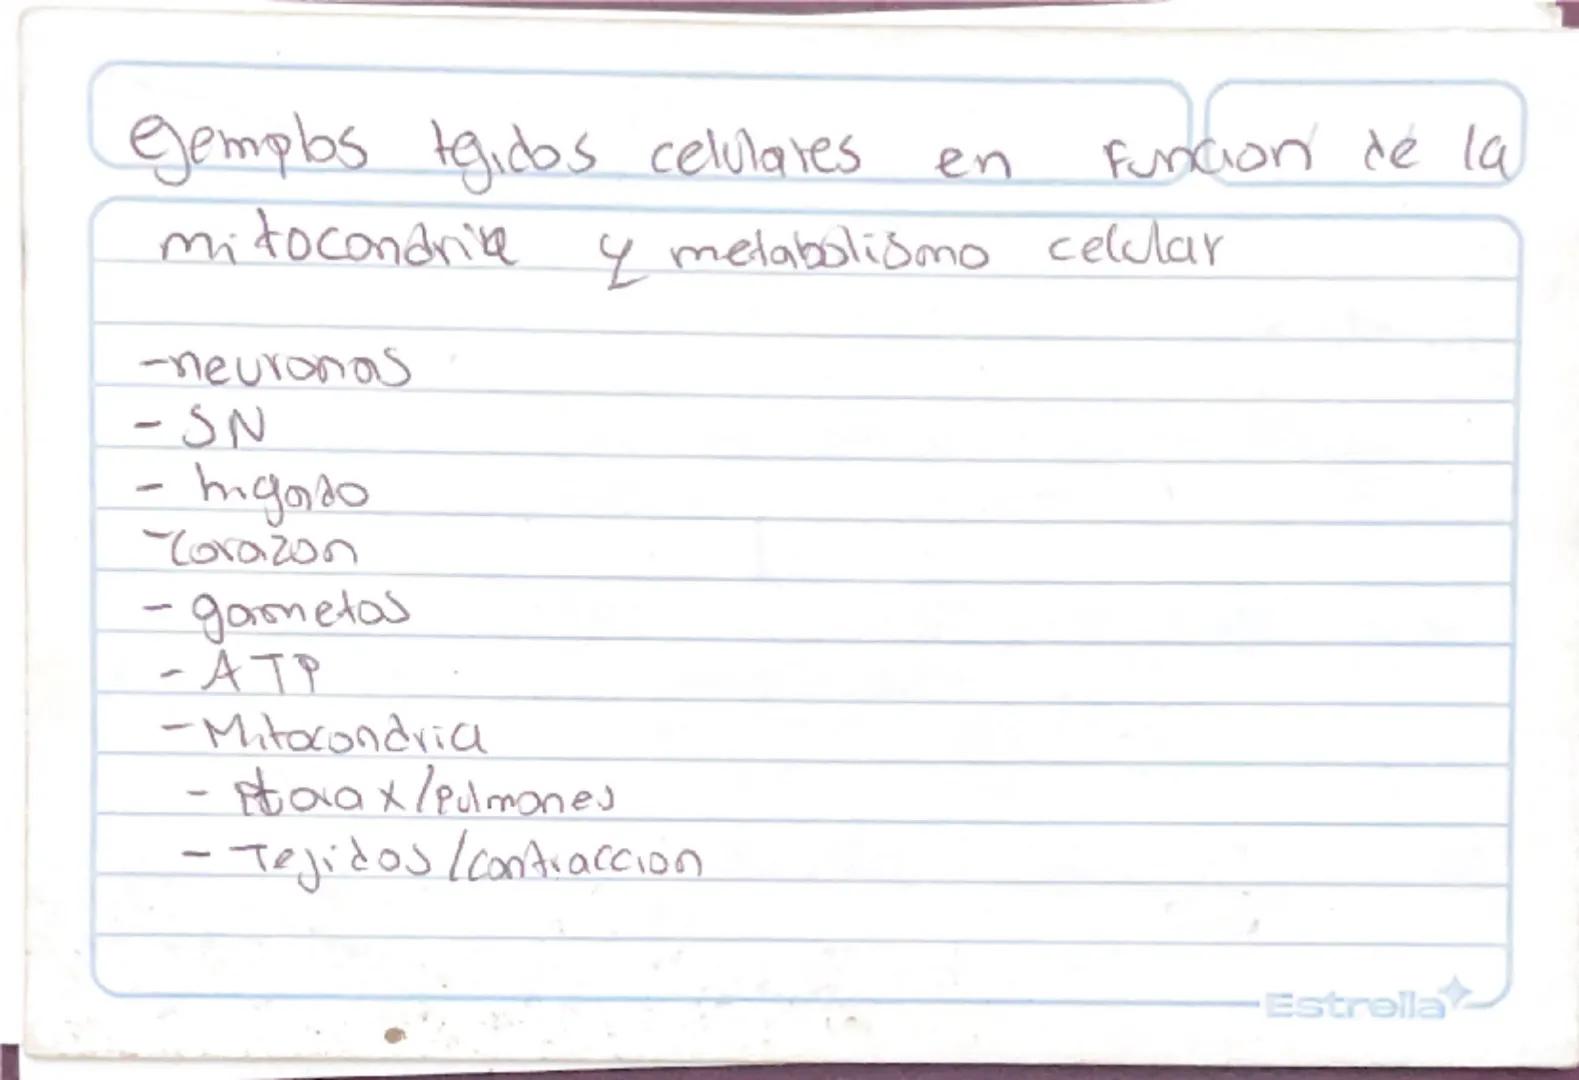 ejemplos tejidos celulares en funcion de la
mitocondria y metabolismo celular
-neuronas
- SN
- higado
-corazon
- gametos
- ATP
- Mitocondria
- torax/pulmones
- Tejidos/contraccion
Estrella